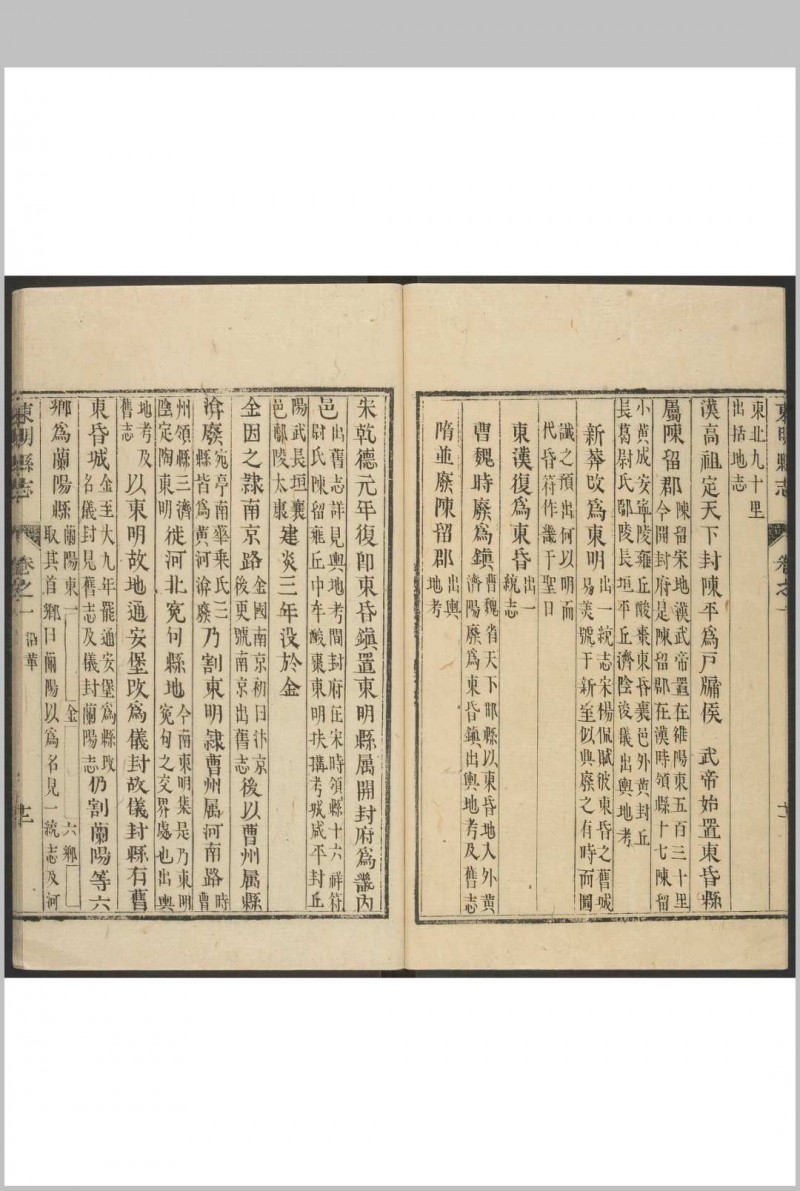 東明縣志 卷之一
東北九十里
出括地志
漢高祖定天下封陳平爲戸牖侯 武帝始置東昏縣
屬陳留郡 陳留宋地漢武帝置在雒陽東五百三十里
今開封府是陳留郡在漢時領縣十七陳留
小黃成安寧陵雍丘酸棗東昏襄邑外黃封丘
長葛尉氏鄢陵長垣平丘濟陰浚儀出輿地考
新莽改爲東明 出一統志宋楊侃賦彼東昏之舊城
易美號于新室似興廢之有時而圖
讖之預出何以明而
代昏符作畿于聖日
東漢復爲東昏 出一
統志
曹魏時廢爲鎮 曹魏省天下郡縣以東昏地入外黃
濟陽廢爲東昏鎮出輿地考及舊志
隋並廢陳留郡 出輿
地考
宋乾德元年復卽東昏鎮置東明縣属開封府爲畿内
邑 出舊志詳見輿地考開封府在宋時領縣十六祥符
尉氏陳留雍丘中牟酸棗東明扶溝考城咸平封丘
陽武長垣襄
邑鄢陵太康 建炎三年没於金
金因之隷南京路 金國南京初曰汴京
後更號南京出舊志 後以曹州属縣
渰廢 宛亭南華乘氏三
縣皆爲黃河渰廢 乃割東明隷曹州属河南路 時曹
州領縣三濟
陰定陶東明 徙河北寃句縣地 今南東明集是乃東明
寃句之交界處也出輿
地考及
舊志 以東明故地通安堡改爲儀封故儀封縣有舊
東昏城 金至大九年罷通安堡爲縣改
名儀封見舊志及儀封蘭陽志 仍割蘭陽等六
鄉爲蘭陽縣 蘭陽東一 金 六鄉
取其首鄉曰蘭陽以爲名見一統志及河
東明縣志 卷之一 沿革 十二